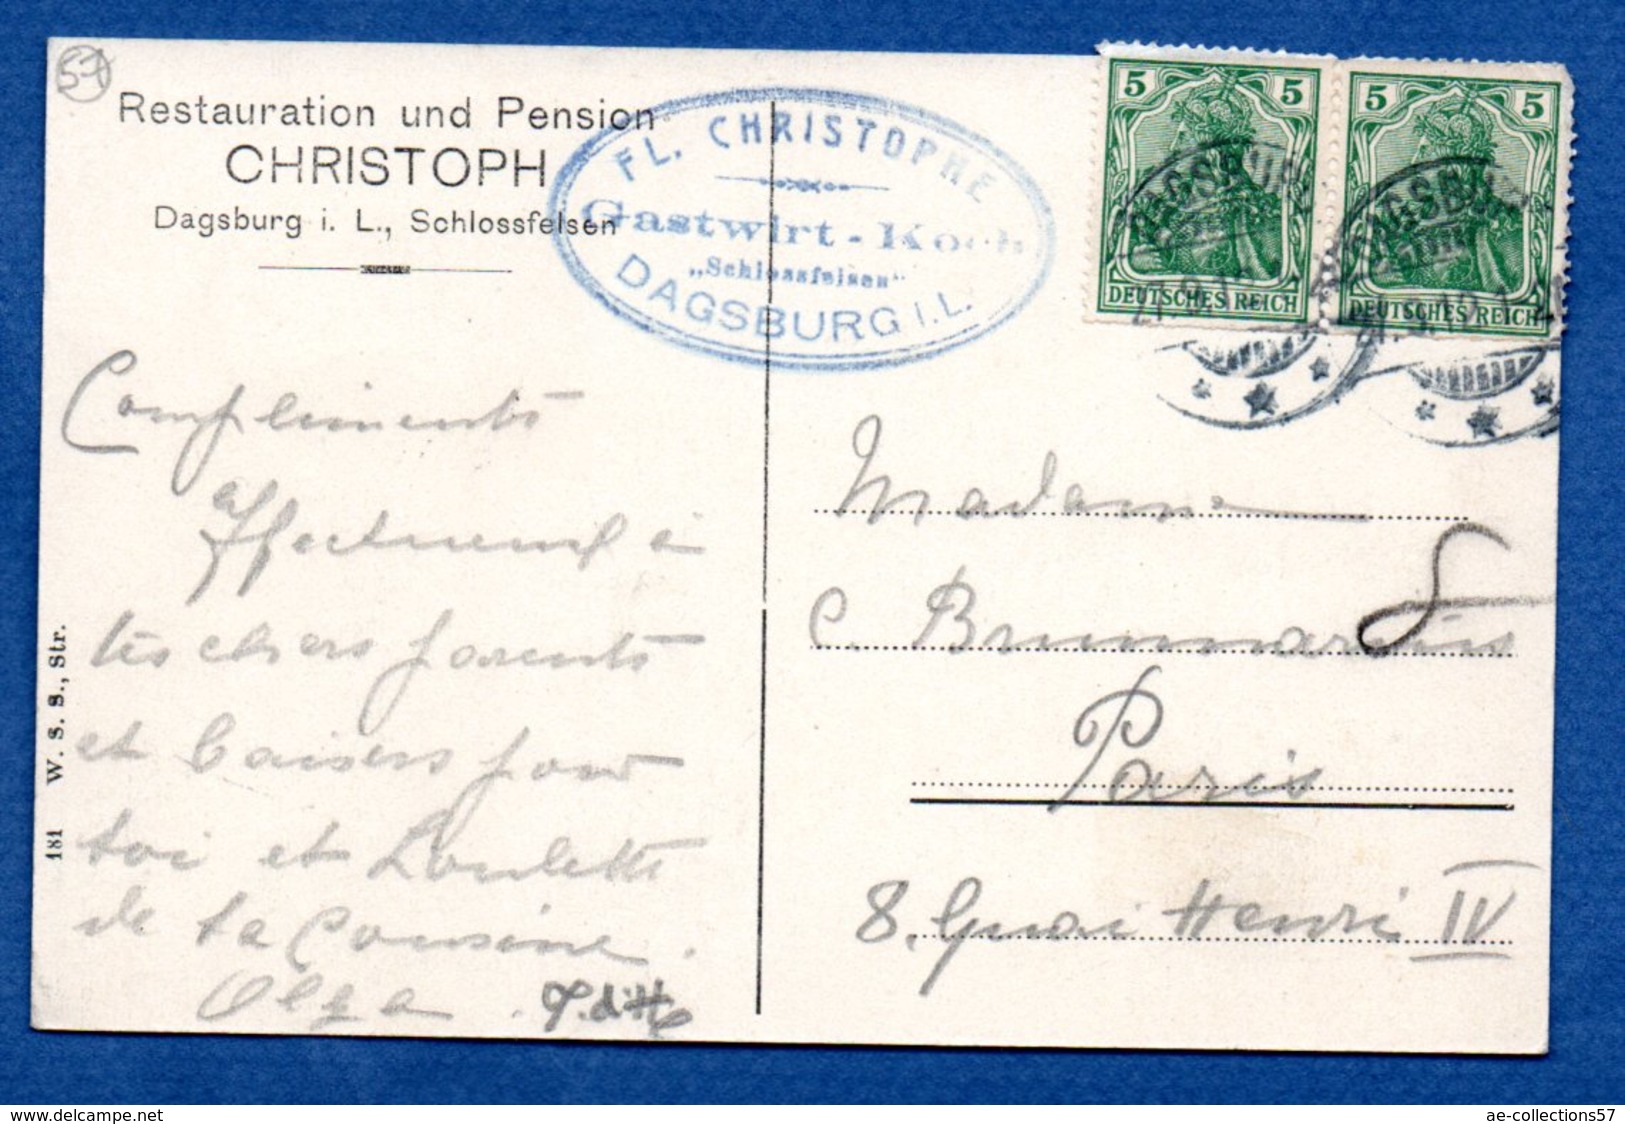 51
Restauration und Pension
CHRISTOPH
Dagsburg i. L., Schlossfelsen
FL. CHRISTOPHE
Gastwirt - Koch
„Schlossfelsen"
DAGSBURG i. L.
5 5
DEUTSCHES REICH
5 5
DEUTSCHES REICH
DAGSBURG
DAGSBURG
Compliments
affectueux à
tes chers parents
et baisers pour
toi et Loulette
de ta Cousine
Olga
Madame
C. Brunnarius
Paris
8. Quai Henri IV
181 W. S. S., Str.
www.delcampe.net
ae-collections57